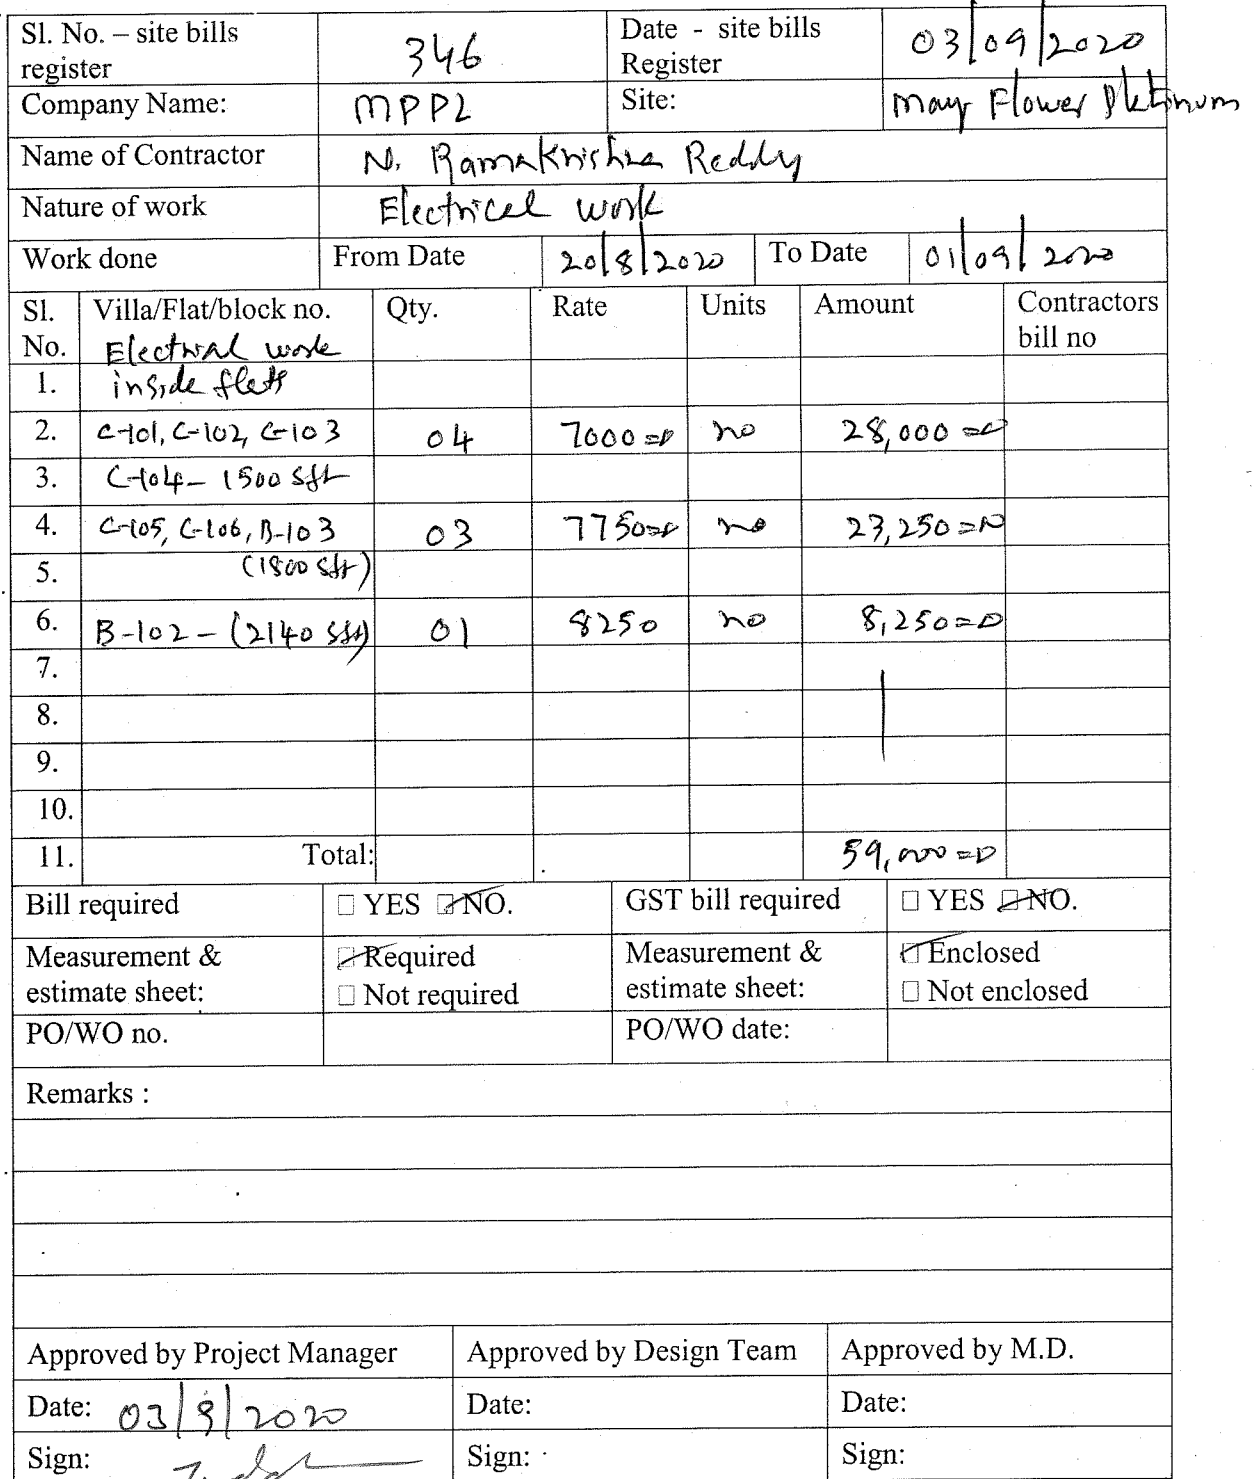 Sl. No. – site bills register 346 Date - site bills Register 03/09/2020
Company Name: MPPL Site: May Flower Platinum
Name of Contractor N. Ramakrishna Reddy
Nature of work Electrical work
Work done From Date 20/8/2020 To Date 01/09/2020
Sl. No. Villa/Flat/block no. Qty. Rate Units Amount Contractors bill no
Electrical work
1. inside flats
2. C-101, C-102, C-103 04 7000=0 no 28,000=0
3. C-104- 1500 sft
4. C-105, C-106, B-103 03 7750=0 no 23,250=0
5. (1800 sft)
6. B-102-(2140 sft) 01 8250 no 8,250=0
7.
8.
9.
10.
11. Total: 59,000=0
Bill required ☐ YES ☑ NO. GST bill required ☐ YES ☑ NO.
Measurement & estimate sheet: ☑ Required Measurement & estimate sheet: ☑ Enclosed
☐ Not required ☐ Not enclosed
PO/WO no. PO/WO date:
Remarks :
Approved by Project Manager Approved by Design Team Approved by M.D.
Date: 03/9/2020 Date: Date:
Sign: Sign: Sign: